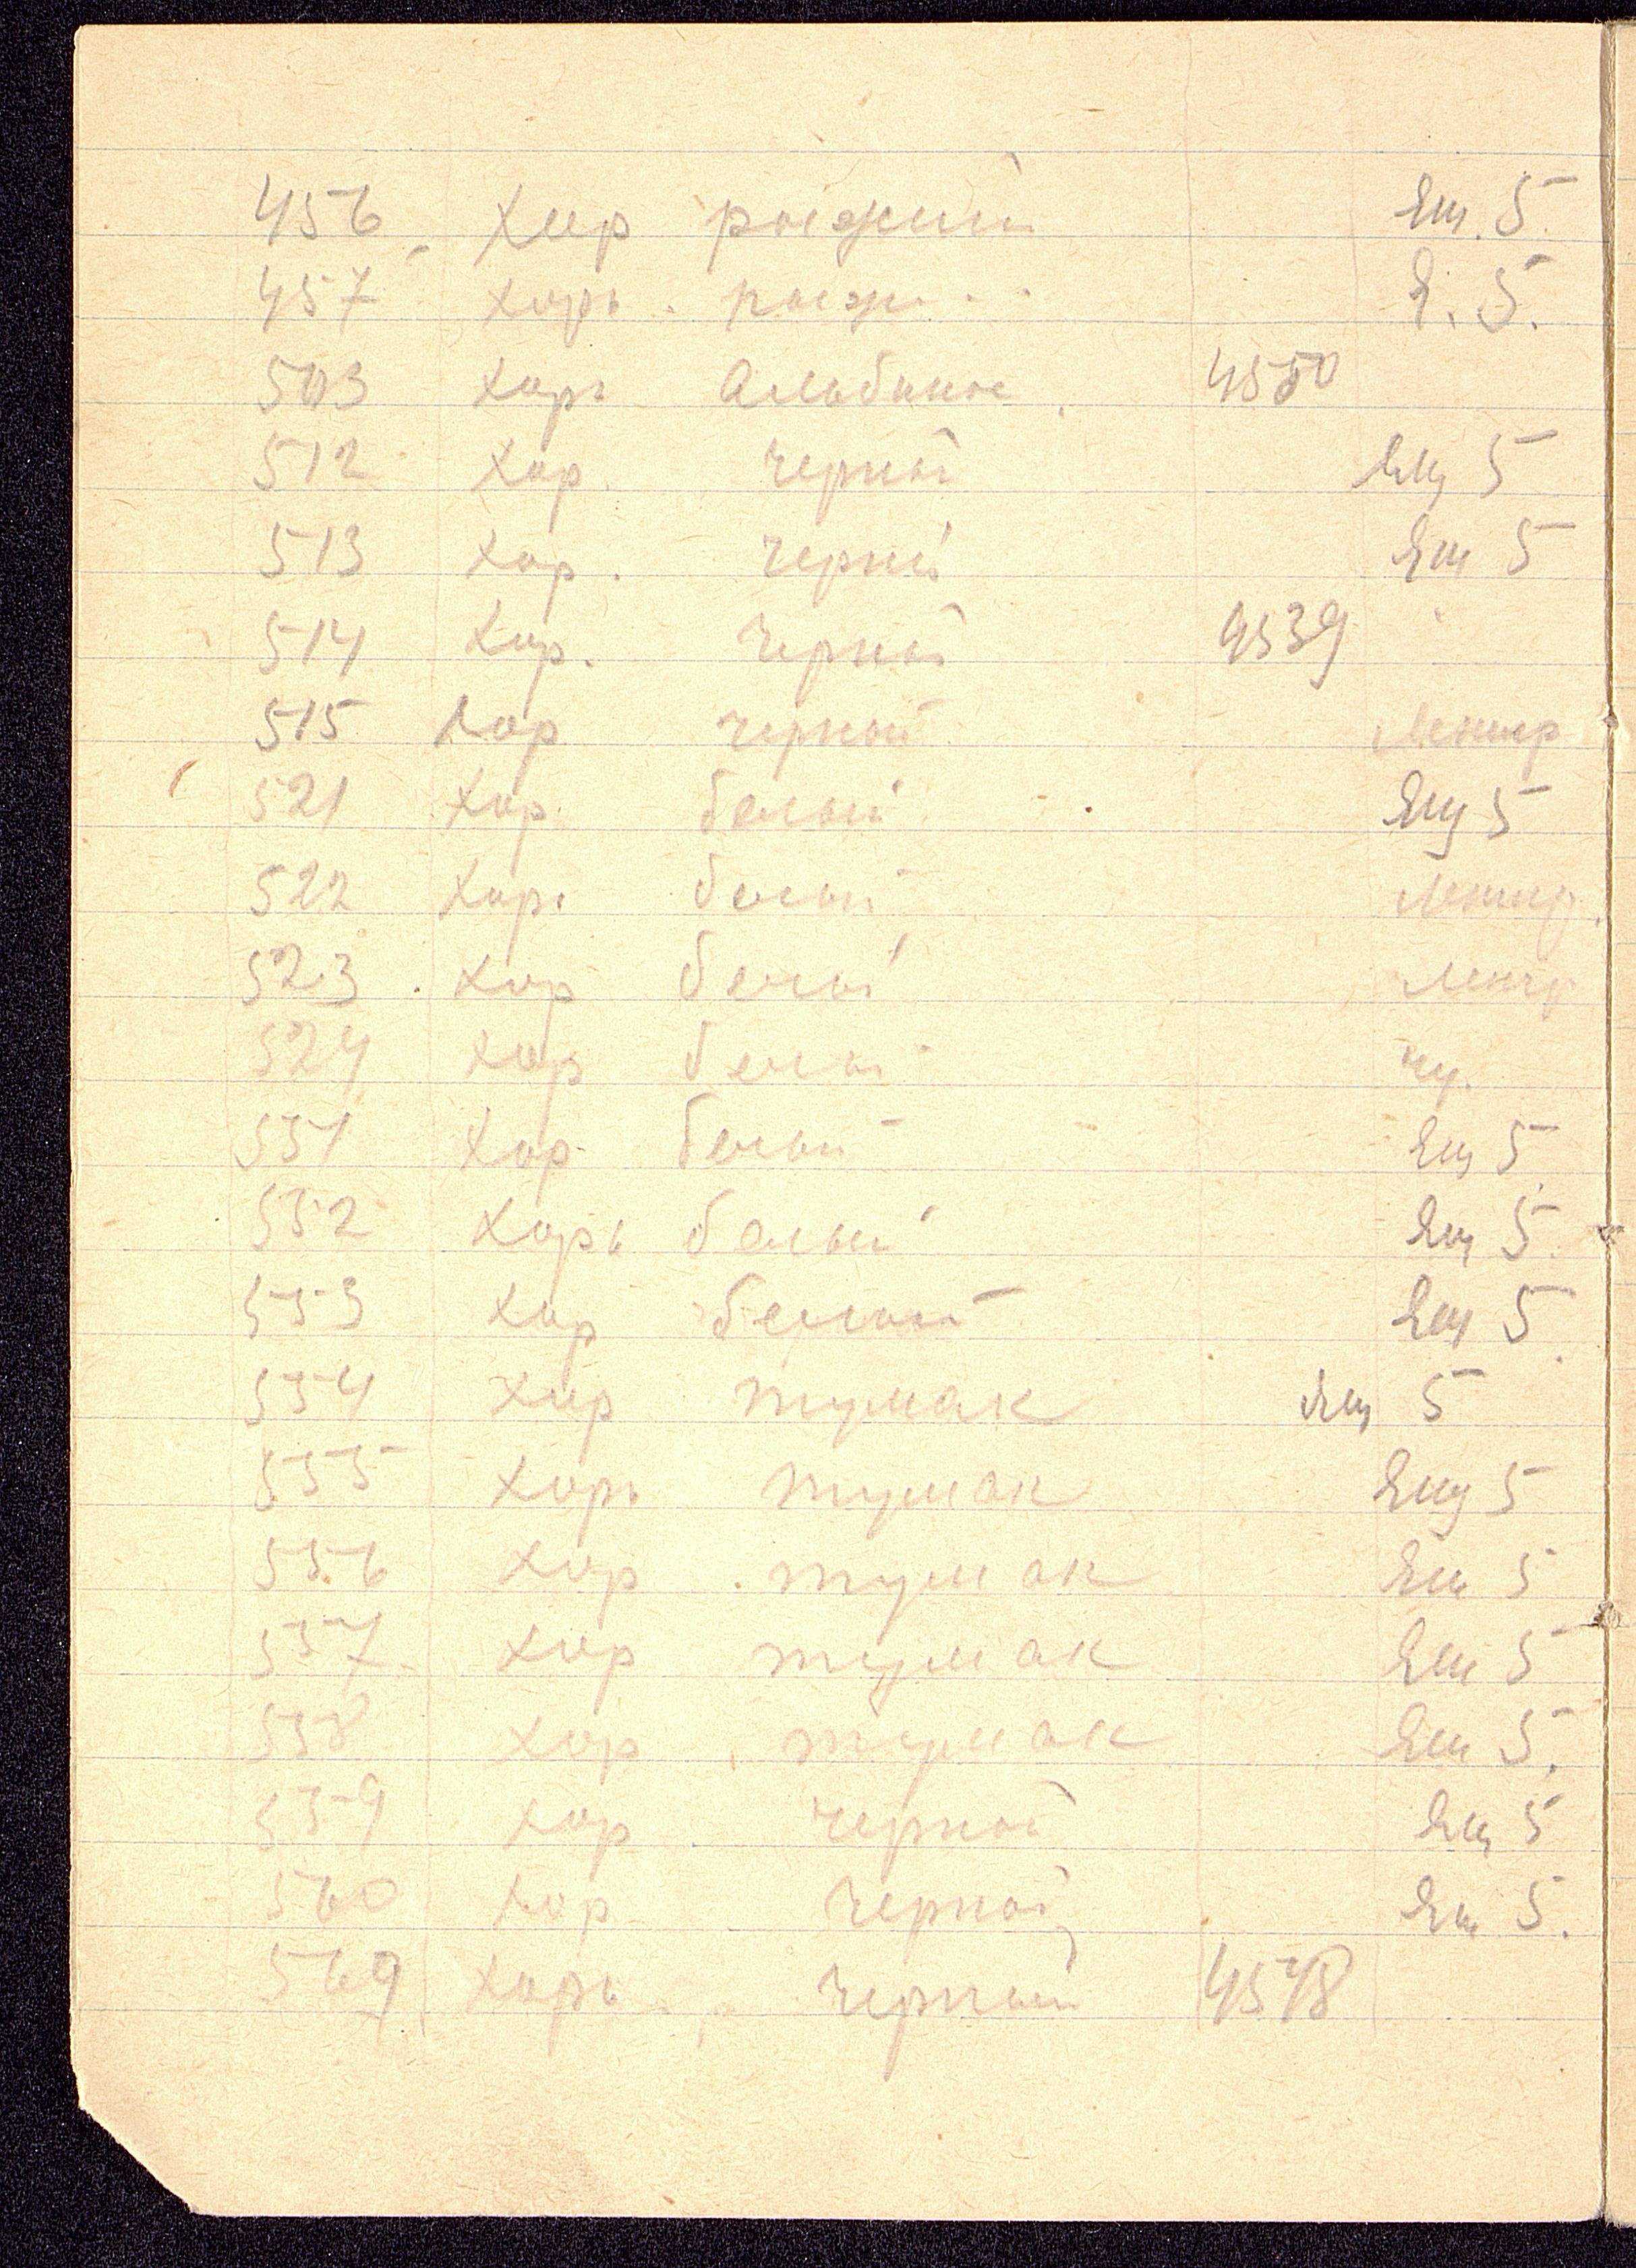 456 Хор рыжий Ящ. 5.
457 Хорь рыж. Я. 5.
503 Хорь Альбинос 4550
512 Хор. черный Ящ 5
513 Хор. черный Ящ 5
514 Хор. Черный 4539
515 Хор черный Ленигр
521 Хор. белый Ящ 5
522 Хор. белый Ленигр.
523 Хор белый Ленгр
524 Хор белый
531 Хор белый Ящ 5
532 Хорь белый Ящ 5.
533 Хор белый Ящ 5
534 Хор тумак Ящ 5
535 Хорь тумак Ящ 5
536 Хор тумак Ящ 5
537 Хор тумак Ящ 5
538 Хор тумак Ящ 5.
539 Хор черной Ящ 5
560 Хор Черной Ящ 5.
569 Хорь Черный 4578